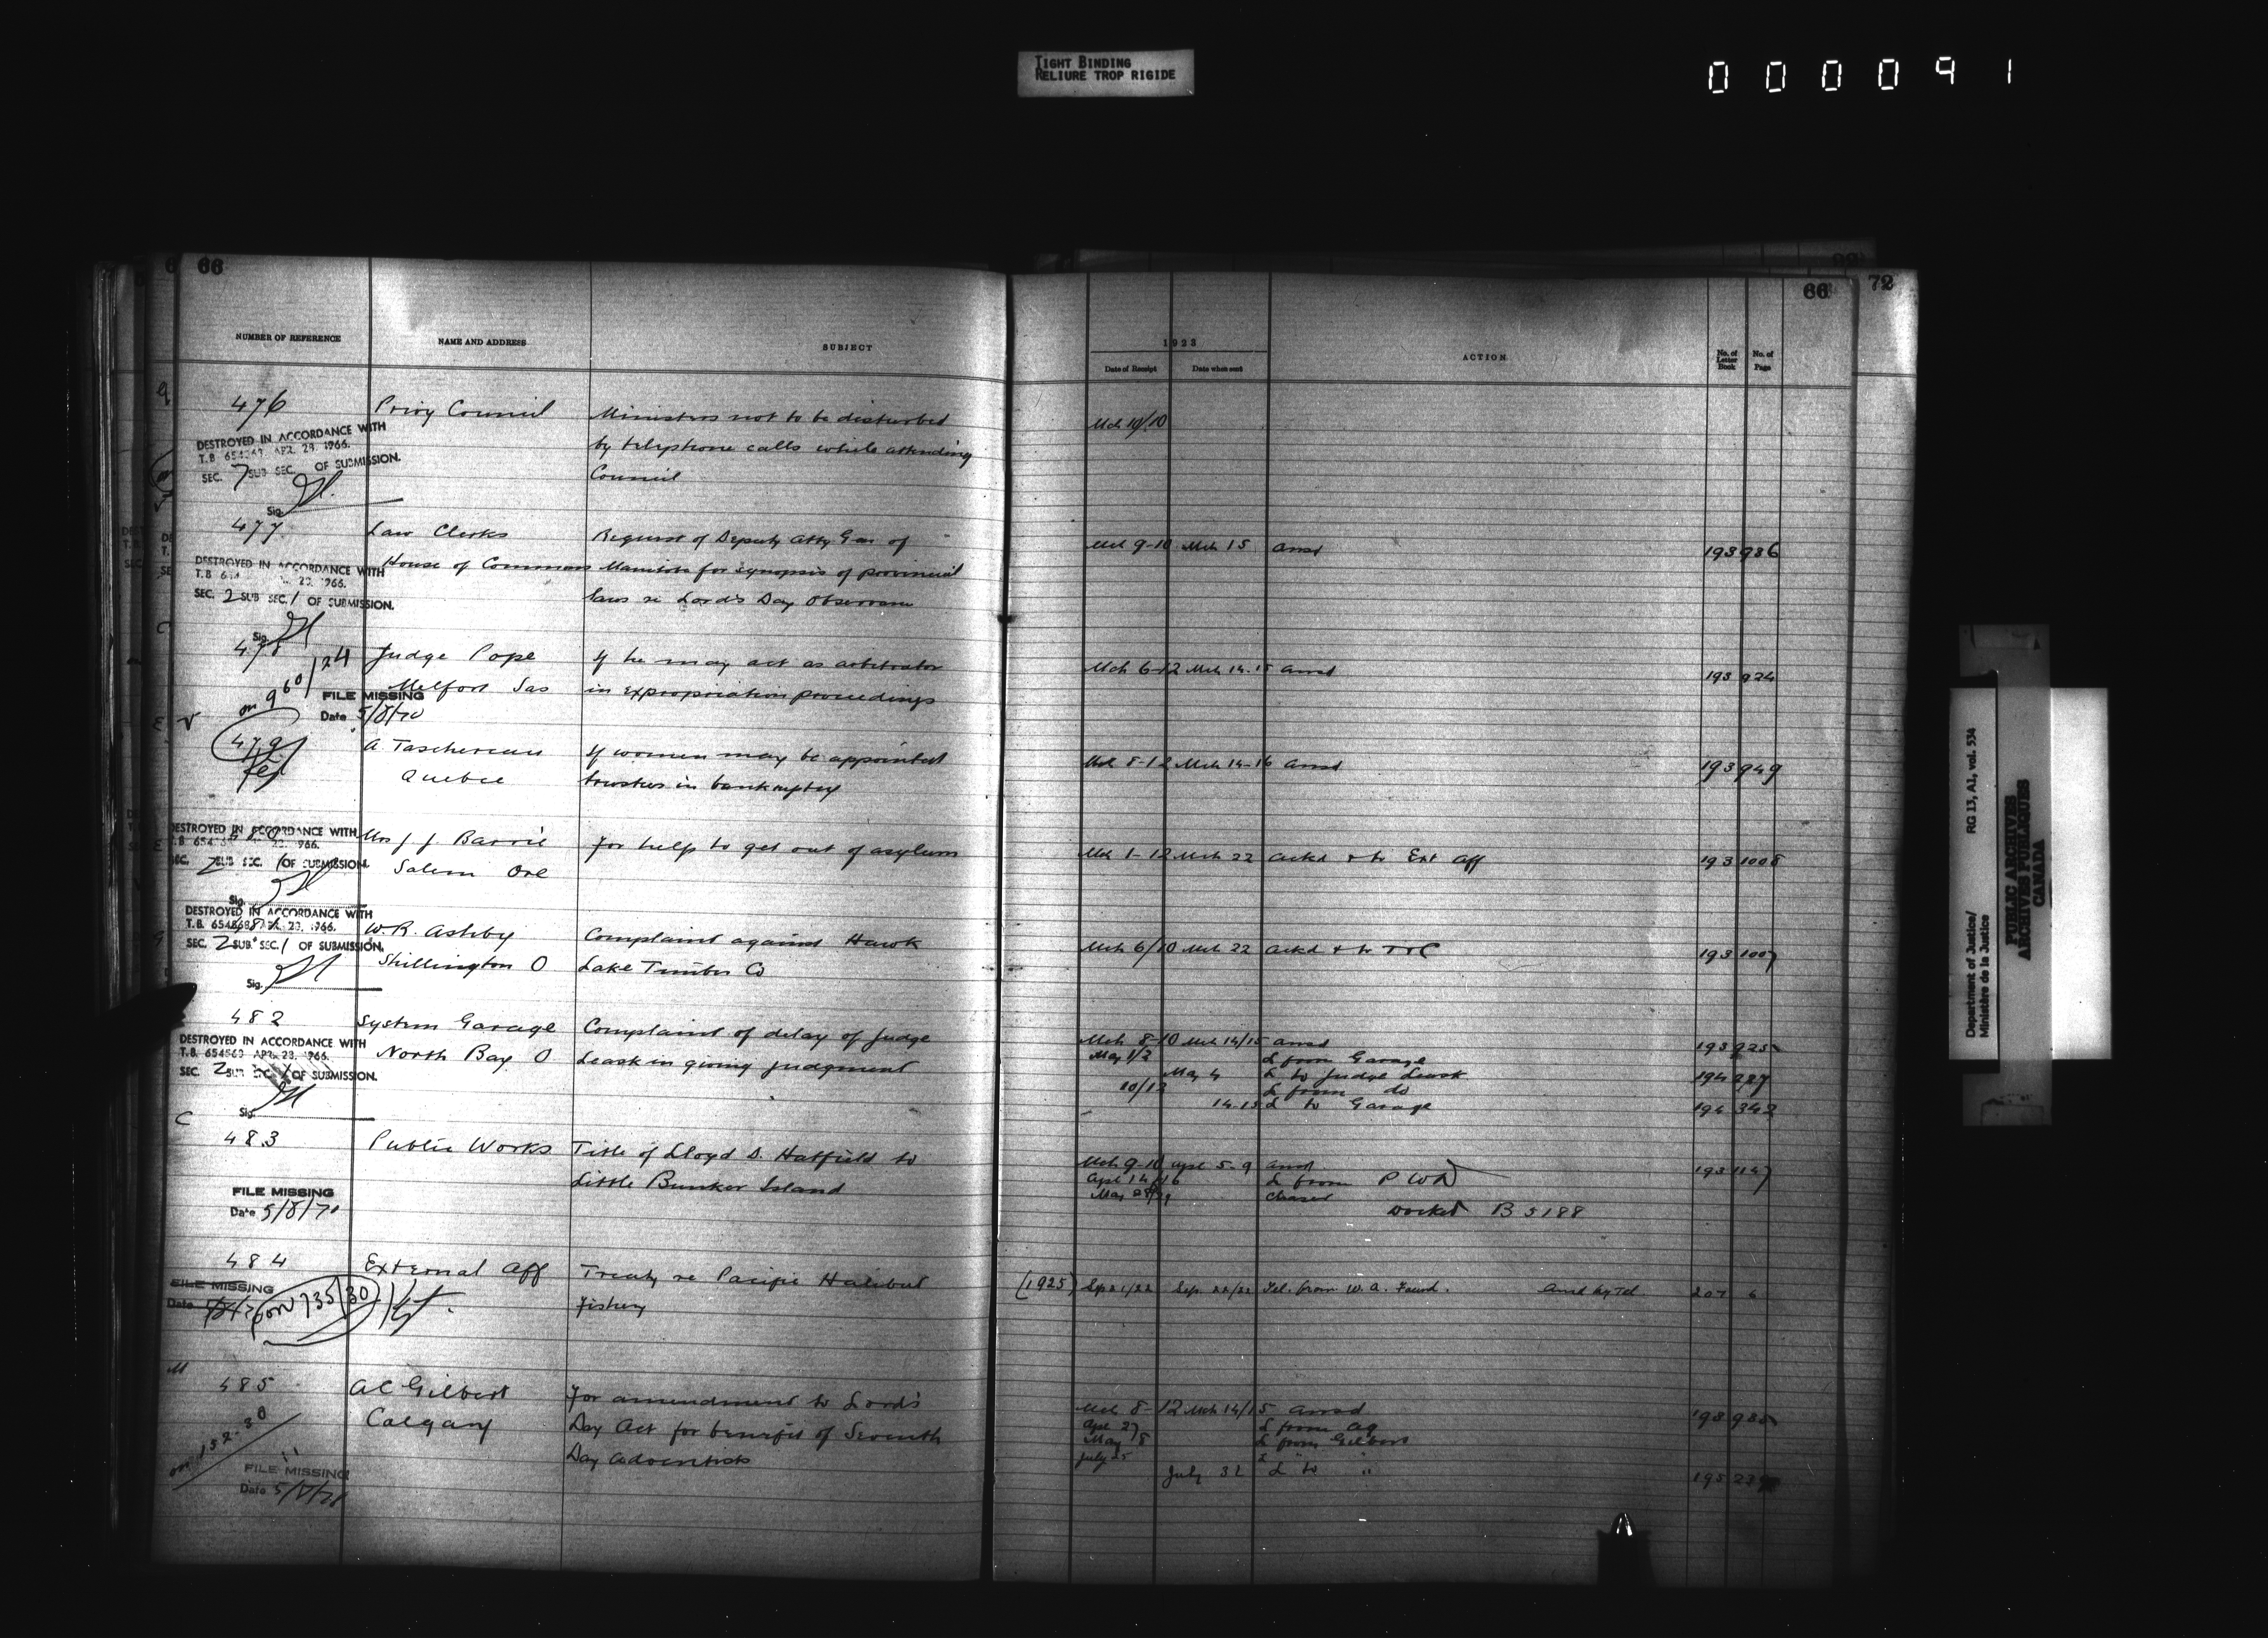 TIGHT BINDING
RELIURE TROP RIGIDE
000091
66
NUMBER OF REFERENCE NAME AND ADDRESS SUBJECT
476 Privy Council Ministers not to be disturbed
by telephone calls while attending
Council
DESTROYED IN ACCORDANCE WITH
T.B. APR. 28, 1966.
SEC. 7 SUB SEC. OF SUBMISSION.
Sig.
477 Law Clerks Request of Deputy Atty Gen of
House of Commons Manitoba for synopsis of provincial
laws re Lord's Day Observance
DESTROYED IN ACCORDANCE WITH
T.B. 1966.
SEC. 2 SUB SEC. 1 OF SUBMISSION.
Sig.
478 Judge Pope If he may act as arbitrator
Melfort Sas in expropriation proceedings
on 960/24
FILE MISSING
Date 5/8/70
479 A. Taschereau If women may be appointed
Quebec trustees in bankruptcy
DESTROYED IN ACCORDANCE WITH
1966.
SEC. 2 SUB SEC. 1 OF SUBMISSION.
Sig.
Mrs J. J. Barrie For help to get out of asylum
Salem Ore
DESTROYED IN ACCORDANCE WITH
T.B. 1966.
SEC. 2 SUB. SEC. 1 OF SUBMISSION.
Sig.
W. R. Ashby Complaint against Hawk
Shillington O Lake Timber Co
482 System Garage Complaint of delay of Judge
North Bay O Leask in giving judgment
DESTROYED IN ACCORDANCE WITH
T.B. 654563 APR. 28, 1966.
SEC. 2 SUB SEC. OF SUBMISSION.
Sig.
C
483 Public Works Title of Lloyd D. Hatfield to
Little Bunker Island
FILE MISSING
Date 5/8/70
484 External Aff Treaty re Pacific Halibut
Fishery
FILE MISSING
Date
on 735/30
M
485 A C Gilbert For amendment to Lord's
Calgary Day Act for benefit of Seventh
Day Adventists
on 152-30
FILE MISSING
Date
66
72
1923
Date of Receipt Date when sent ACTION No. of Letter Book No. of Page
Mch 10/10
Mch 9-10 Mch 15 ansd 193 936
Mch 6-12 Mch 14-15 ansd 193 924
Mch 8-12 Mch 14-16 ansd 193 949
Mch 1-12 Mch 22 ackd & to Ext Aff 193 1008
Mch 6/10 Mch 22 ackd & to 193 1007
Mch 8-10 Mch 14/15 ansd 193 925
May 1/2 L from Garage
May 4 L to Judge Leask 194 287
10/12 L from do
14-15 L to Garage 194 342
Mch 9-10 Apl 5-9 ansd 193 1147
Apl 14/16 L from P W D
May chased
Docket B 5188
(1925) Sep 21/22 Sep. 22/22 Tel. from W. A. Found. Ansd by Tel. 207 6
Mch 8-12 Mch 14/15 ansd
Apl 27 L from AG
May 8 L from Gilbert
July 25 L " "
July 31 L to "
Department of Justice/
Ministère de la Justice
RG 13, A1, vol. 534
PUBLIC ARCHIVES
ARCHIVES PUBLIQUES
CANADA